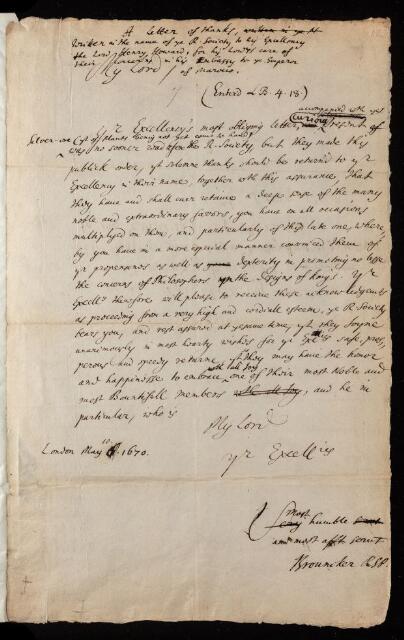 A letter of thanks, written in ye
written in the name of ye R. Society to his Excellency
the Lord Henry Howard, for his Lordps care of
their concerns in his Embassy to ye Emperor
of Marocco.
My Lord
(Enterd L B. 4. 18.)
accompanied with yt
curious
Yr Excellency's most obliging letter, present of
Silver-ore (ye Cyst of plants being not yet come to hand)
was no sooner read before the R. Society, but they made this
publick order, yt solemne thanks should be return'd to yr
Excellency in their name, together with this assurance, that
they have and shall ever retaine a deep sense of the many
noble and extraordinary favors, you have on all occasions
multiplyed on them, and particularly of this late one, where
by you have in a more especial manner convinced them of
yr propenseness as well as dexterity in promoting no lesse
the concerns of Philosophers yn the Designs of Kings. Yr
Excellcy therefore will please to receive these acknowledgments
as proceeding from a very high and cordiall esteem, ye R. Society
bears you, and rest assured at ye same time, yt they joyne
unanimously in most hearty wishes for yr Excys safe, pros
perous and speedy returne, yt they may have the honor
with all Joy
and happinesse to embrace one of their most Noble and
most Bountifull members with all Joy, and he in
particular, who is
My Lord
London May 10. 1670.
yr Excellcies
most
very humble servt
and most afft servt
Brouncker P.R.S.